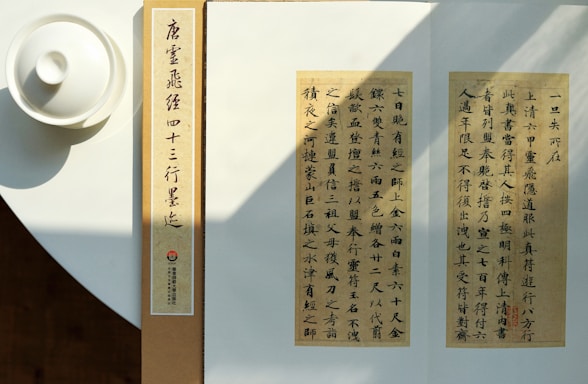 唐靈飛經四十三行墨迹
一旦失所在
上清六甲靈飛隱道服此真符遊行八方行
此真書當得其人按四極明科傳上清內書
者皆列盟奉跪啓誓乃宣之七百年得付六
人過年限足不得復出洩也其受符皆對齋
七日跪有經之師上金六兩白素六十尺金
鐶六雙青絲六兩五色繒各廿二尺以代翦
髮歃血登壇之誓以盟奉行靈符玉名不洩
之信矣違盟負信三祖父母獲風刀之考詣
積夜之河捷蒙山巨石填之水津有經之師